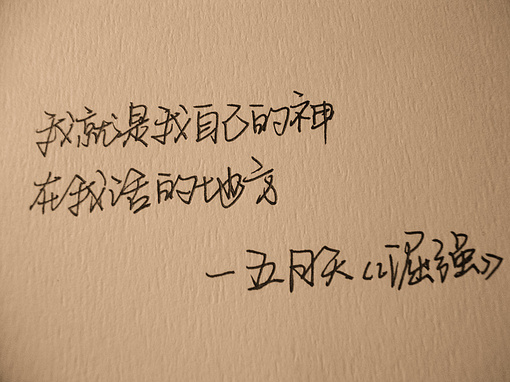 我就是我自己的神
在我活的地方
—五月天《倔强》